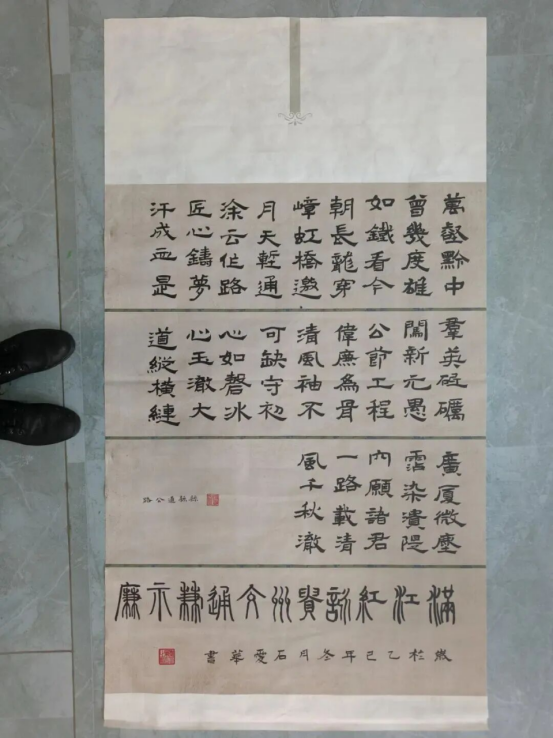 萬壑黔中
曾幾度雄
如鐵看今
朝長龍穿
嶂虹橋邀
月天塹通
涂云作路
匠心鑄夢
汗成血是
羣英砥礪
闢新元愚
公節工程
偉廉為骨
清風袖不
可缺守初
心如磬冰
心玉澈大
道縱橫縺
廣厦微塵
霑染潰隄
穴願諸君
一路載清
風千秋澈
滿江紅詠貴州交通兼示廉
歲於乙巳年冬月石愛華書